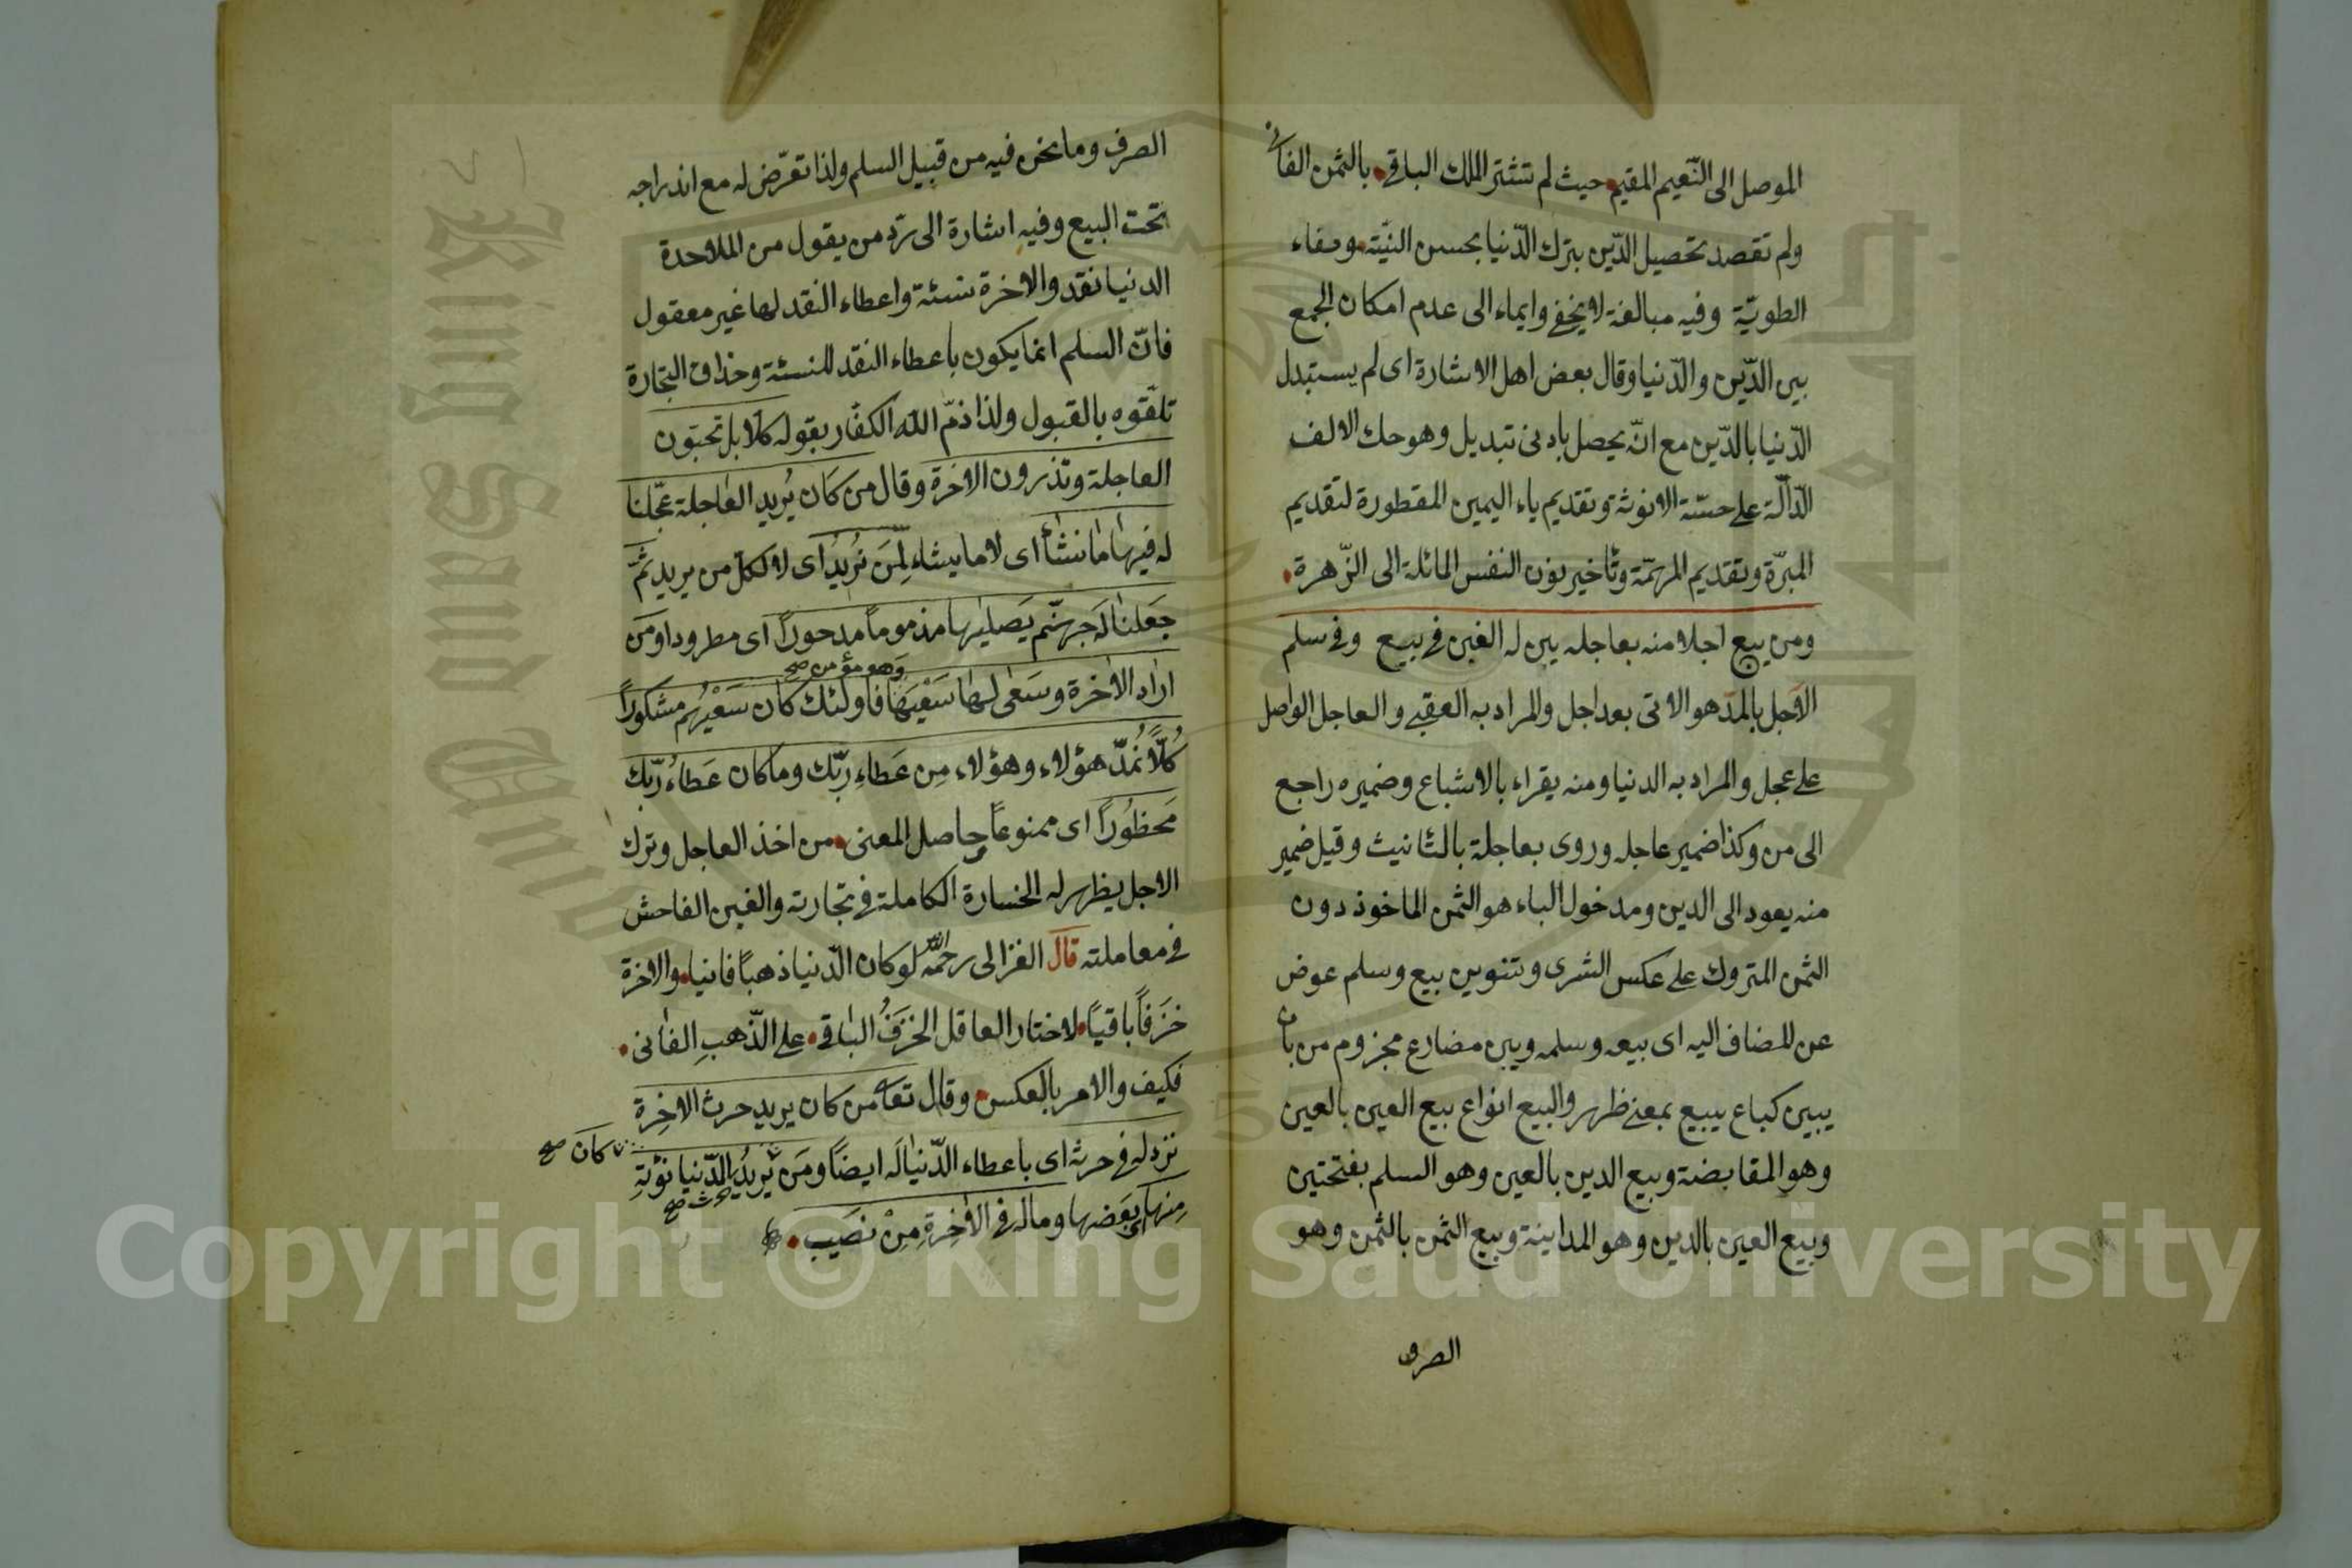 الموصل الى النّعيم المقيم حيث لم تشتر الملك الباقي بالثمن الفاني
ولم تقصد تحصيل الدّين بترك الدّنيا بحسن النيّة وصفاء
الطويّة وفيه مبالغة لا يخفى وايماء الى عدم امكان الجمع
بين الدّين والدّنيا وقال بعض اهل الاشارة اى لم يستبدل
الدّنيا بالدّين مع انّه يحصل بادنى تبديل وهو حك الالف
الدّالّة على الانوثة وتقديم ياء اليمين المقطورة لتقديم
المبرّة وتقديم المهمّة وتأخير نون النفس المائلة الى الزّهرة
ومن يبع اجلا منه بعاجله يبن له الغبن فى بيع وفى سلم
الآجل بالمدّ هو الاتى بعد اجل والمراد به العقبى والعاجل الواصل
على عجل والمراد به الدنيا ومنه يقراء بالاشباع وضميره راجع
الى من وكذا ضمير عاجله وروى بعاجلة بالتانيث وقيل ضمير
منه يعود الى الدين ومدخول الباء هو الثمن الماخوذ دون
الثمن المتروك على عكس الشرى وتنوين بيع وسلم عوض
عن المضاف اليه اى بيعه وسلمه ويبن مضارع مجزوم من بان
يبين كباع يبيع بمعنى ظهر والبيع انواع بيع العين بالعين
وهو المقابضة وبيع الدين بالعين وهو السلم بفتحتين
وبيع العين بالدين وهو المداينة وبيع الثمن بالثمن وهو
الصرف
الصرف وما نحن فيه من قبيل السلم ولذا تعرّض له مع اندراجه
تحت البيع وفيه اشارة الى ردّ من يقول من الملاحدة
الدنيا نقد والاخرة نسئة واعطاء النقد لها غير معقول
فانّ السلم انما يكون باعطاء النقد للنسئة وحذاق التجارة
تلقّوه بالقبول ولذا ذمّ الله الكفّار بقوله كلا بل تحبّون
العاجلة وتذرون الاخرة وقال من كَان يُريد العاجلة عجّلنا
له فيها ما نشأ اى لا ما يشاء لِمَن نُرِيدُ اى لا لكل من يريد ثمّ
جَعلنا لَه جهنّم يَصليها مذموماً مدحوراً اى مطرودا ومَن
وَهو مؤمن صح
اراد الاخرة وسَعى لها سَعْيَهَا فاولئك كان سَعْيُهُم مشكوراً
كُلّاً نُمدّ هؤلاء وهؤلاء مِن عَطاءِ ربّك وما كان عَطاءُ ربّك
مَحظُوراً اى ممنوعاً حاصل المعنى من اخذ العاجل وترك
الاجل يظهر له الخسارة الكاملة فى تجارته والغبن الفاحش
فى معاملته قال الغزالى رحمه الله لو كان الدّنيا ذهباً فانيا والاخرة
خزَفاً باقياً لاختار العاقل الخزفُ الباقي على الذّهبِ الفانى
فكيف والامر بالعكس وقال تعا من كان يريد حرث الاخِرة
نزد له فى حرثه اى باعطاء الدّنيا لَه ايضاً ومَن يُريدُ الدّنيا نؤتِهِ
كَان صح
حرث صح
مِنها اى بَعضها وماله فى الاخِرةِ مِنْ نصَيب
Copyright © King Saud University